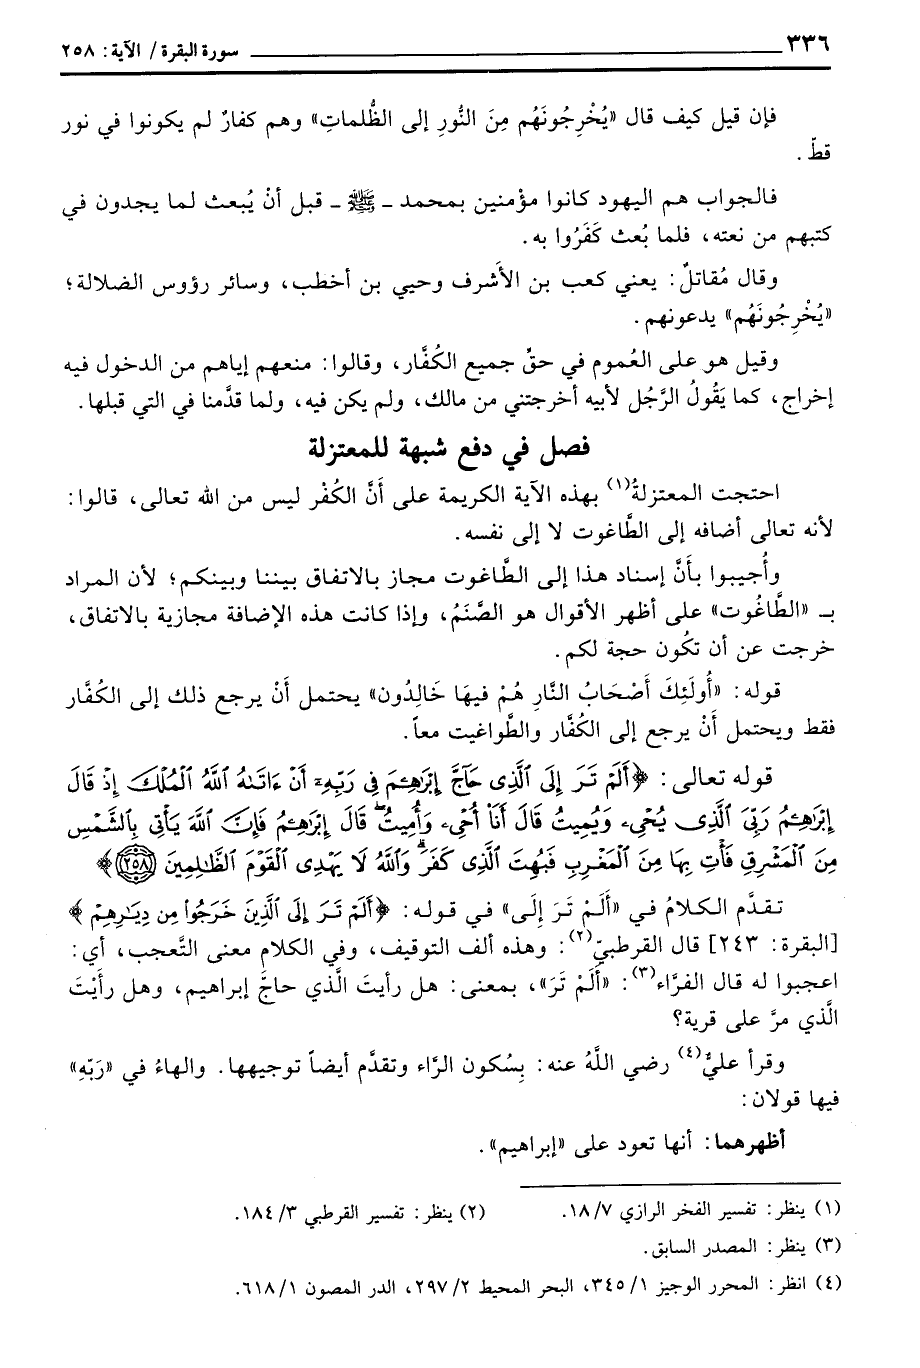 ٣٣٦ سورة البقرة/ الآية: ٢٥٨
فإن قيل كيف قال «يُخْرِجُونَهُم مِنَ النُّورِ إلى الظُّلماتِ» وهم كفارٌ لم يكونوا في نور
قطّ.
فالجواب هم اليهود كانوا مؤمنين بمحمد ـ ﷺ ـ قبل أنْ يُبعث لما يجدون في
كتبهم من نعته، فلما بُعث كَفَرُوا به.
وقال مُقاتلٌ: يعني كعب بن الأَشرف وحيي بن أخطب، وسائر رؤوس الضلالة؛
«يُخْرِجُونَهُم» يدعونهم.
وقيل هو على العُموم في حقِّ جميع الكُفَّار، وقالوا: منعهم إياهم من الدخول فيه
إخراج، كما يَقُولُ الرَّجُل لأبيه أخرجتني من مالك، ولم يكن فيه، ولما قدَّمنا في التي قبلها.
فصل في دفع شبهة للمعتزلة
احتجت المعتزلةُ(١) بهذه الآية الكريمة على أَنَّ الكُفْر ليس من الله تعالى، قالوا:
لأنه تعالى أضافه إلى الطَّاغوت لا إلى نفسه.
وأُجيبوا بأَنَّ إسناد هذا إلى الطَّاغوت مجاز بالاتفاق بيننا وبينكم؛ لأن المراد
بـ «الطَّاغُوت» على أظهر الأقوال هو الصَّنَمُ، وإذا كانت هذه الإضافة مجازية بالاتفاق،
خرجت عن أن تكُون حجة لكم.
قوله: «أُولَئِكَ أَصْحَابُ النَّارِ هُمْ فيهَا خَالِدُون» يحتمل أَنْ يرجع ذلك إلى الكُفَّار
فقط ويحتمل أَنْ يرجع إلى الكُفَّار والطَّواغيت معاً.
قوله تعالى: ﴿أَلَمْ تَرَ إِلَى ٱلَّذِى حَآجَّ إِبْرَٰهِـۧمَ فِى رَبِّهِۦٓ أَنْ ءَاتَىٰهُ ٱللَّهُ ٱلْمُلْكَ إِذْ قَالَ
إِبْرَٰهِـۧمُ رَبِّىَ ٱلَّذِى يُحْىِۦ وَيُمِيتُ قَالَ أَنَا۠ أُحْىِۦ وَأُمِيتُ ۖ قَالَ إِبْرَٰهِـۧمُ فَإِنَّ ٱللَّهَ يَأْتِى بِٱلشَّمْسِ
مِنَ ٱلْمَشْرِقِ فَأْتِ بِهَا مِنَ ٱلْمَغْرِبِ فَبُهِتَ ٱلَّذِى كَفَرَ ۗ وَٱللَّهُ لَا يَهْدِى ٱلْقَوْمَ ٱلظَّٰلِمِينَ ٢٥٨﴾
تقدَّم الكلامُ في «أَلَمْ تَرَ إِلَى» في قوله: ﴿أَلَمْ تَرَ إِلَى ٱلَّذِينَ خَرَجُوا۟ مِن دِيَٰرِهِمْ﴾
[البقرة: ٢٤٣] قال القرطبيّ(٢): وهذه ألف التوقيف، وفي الكلام معنى التَّعجب، أي:
اعجبوا له قال الفرَّاء(٣): «أَلَمْ تَرَ»، بمعنى: هل رأيتَ الَّذي حاجَّ إبراهيم، وهل رأَيْتَ
الَّذي مرَّ على قرية؟
وقرأ عليٌّ(٤) رضي اللَّهُ عنه: بِسُكون الرَّاء وتقدَّم أيضاً توجيهها. والهاءُ في «رَبّهِ»
فيها قولان:
أظهرهما: أنها تعود على «إبراهيم».
(١) ينظر: تفسير الفخر الرازي ١٨/٧. (٢) ينظر: تفسير القرطبي ١٨٤/٣.
(٣) ينظر: المصدر السابق.
(٤) انظر: المحرر الوجيز ٣٤٥/١، البحر المحيط ٢٩٧/٢، الدر المصون ٦١٨/١.